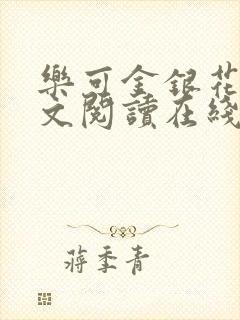 樂可金銀花
文閱讀在綫
蔣季青